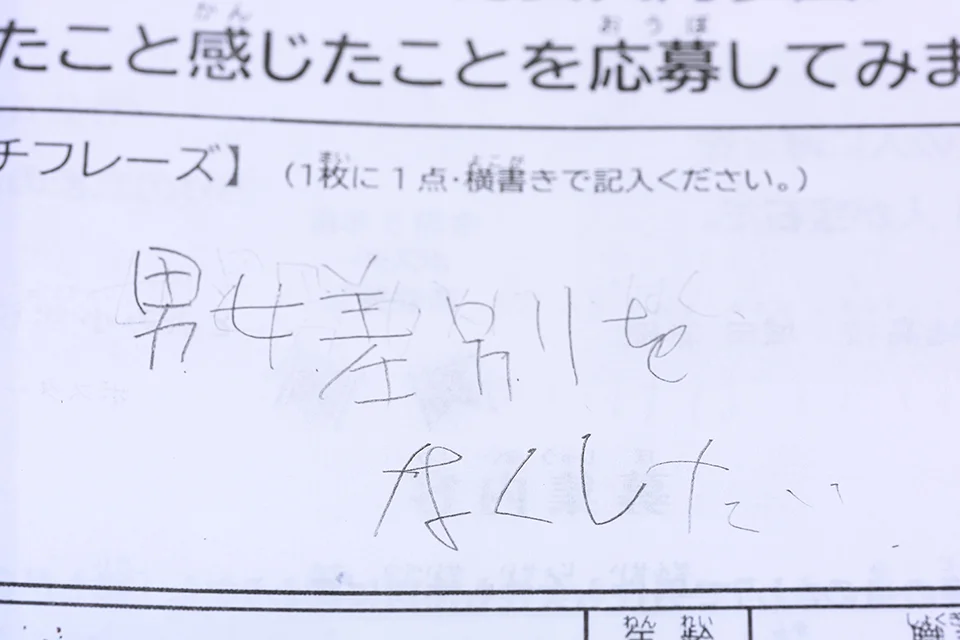 たこと感じたことを応募してみま
チフレーズ】 (1枚に1点・横書きで記入ください。)
男女差別を
なくしたい
年齢 職